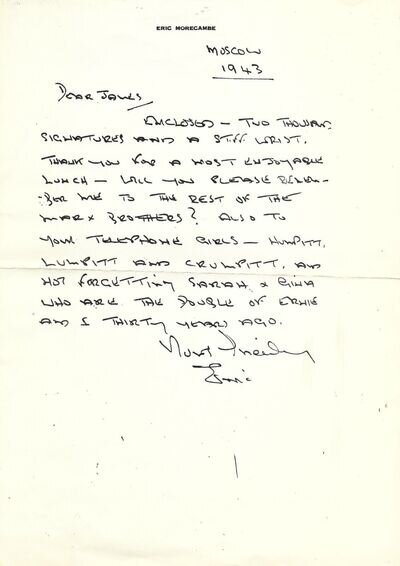 ERIC MORECAMBE
MOSCOW
1943
DEAR JAMES
ENCLOSED – TWO THOUSAND
SIGNATURES AND A STIFF WRIST.
THANK YOU FOR A MOST ENJOYABLE
LUNCH – WILL YOU PLEASE REMEM-
-BER ME TO THE REST OF THE
MARX BROTHERS? ALSO TO
YOUR TELEPHONE GIRLS – HUMPITT,
LUMPITT AND CRUMPITT, AND
NOT FORGETTING SARAH & GINA
WHO ARE THE DOUBLE OF ERNIE
AND I THIRTY YEARS AGO.
Eric